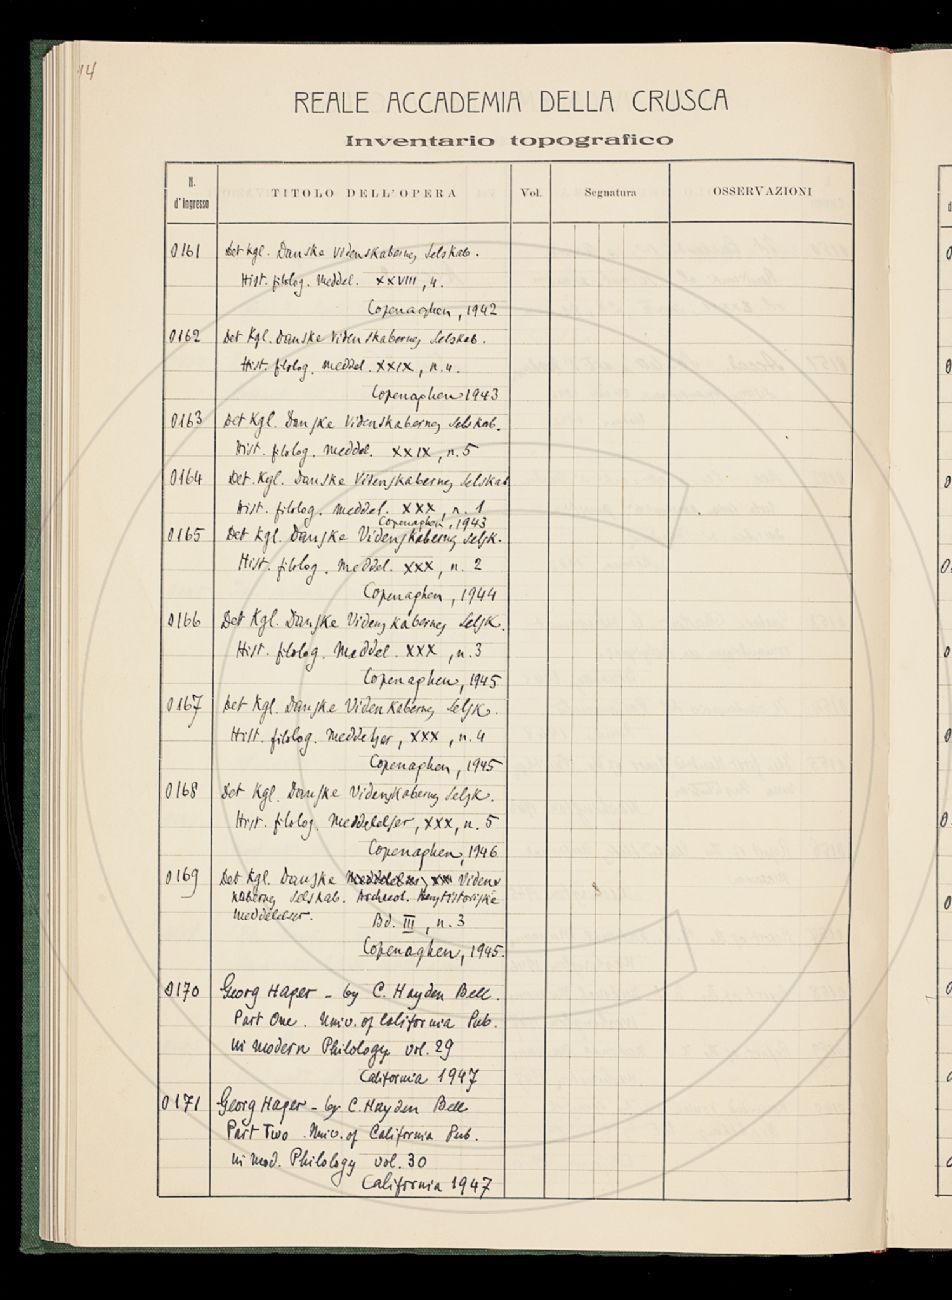 14
REALE ACCADEMIA DELLA CRUSCA
Inventario topografico
N. d'Ingresso TITOLO DELL'OPERA Vol. Segnatura OSSERVAZIONI
0161 Det Kgl. Danske Videnskabernes Selskab.
Hist. filolog. Meddel. XXVIII, 4.
Copenaghen, 1942
0162 Det Kgl. Danske Videnskabernes Selskab.
Hist. filolog. meddel. XXIX, n. 4.
Copenaghen 1943
0163 Det Kgl. Danske Videnskabernes Selskab.
Hist. filolog. meddel. XXIX, n. 5
0164 Det. Kgl. Danske Videnskabernes Selskab
Hist. filolog. meddel. XXX, n. 1
Copenaghen, 1943
0165 Det Kgl. Danske Videnskabernes Selsk.
Hist. filolog. meddel. XXX, n. 2
Copenaghen, 1944
0166 Det Kgl. Danske Videnskabernes Selsk.
Hist. filolog. Meddel. XXX, n. 3
Copenaghen, 1945
0167 Det Kgl. Danske Videnkabernes Selsk.
Hist. filolog. Meddelser, XXX, n. 4
Copenaghen, 1945
0168 Det Kgl. Danske Videnskabernes Selsk.
Hist. filolog. Meddelelser, XXX, n. 5
Copenaghen, 1946
0169 Det Kgl. Danske Videns
kabernes Selskab. Archaeol. Kunsthistoriske
Meddelelser.
Bd. III, n. 3
Copenaghen, 1945.
0170 Georg Hager - by C. Hayden Bell.
Part One. Univ. of California Pub.
in modern Philology vol. 29
California 1947
0171 Georg Hager - by C. Hayden Bell
Part Two. Univ. of California Pub.
in mod. Philology vol. 30
California 1947